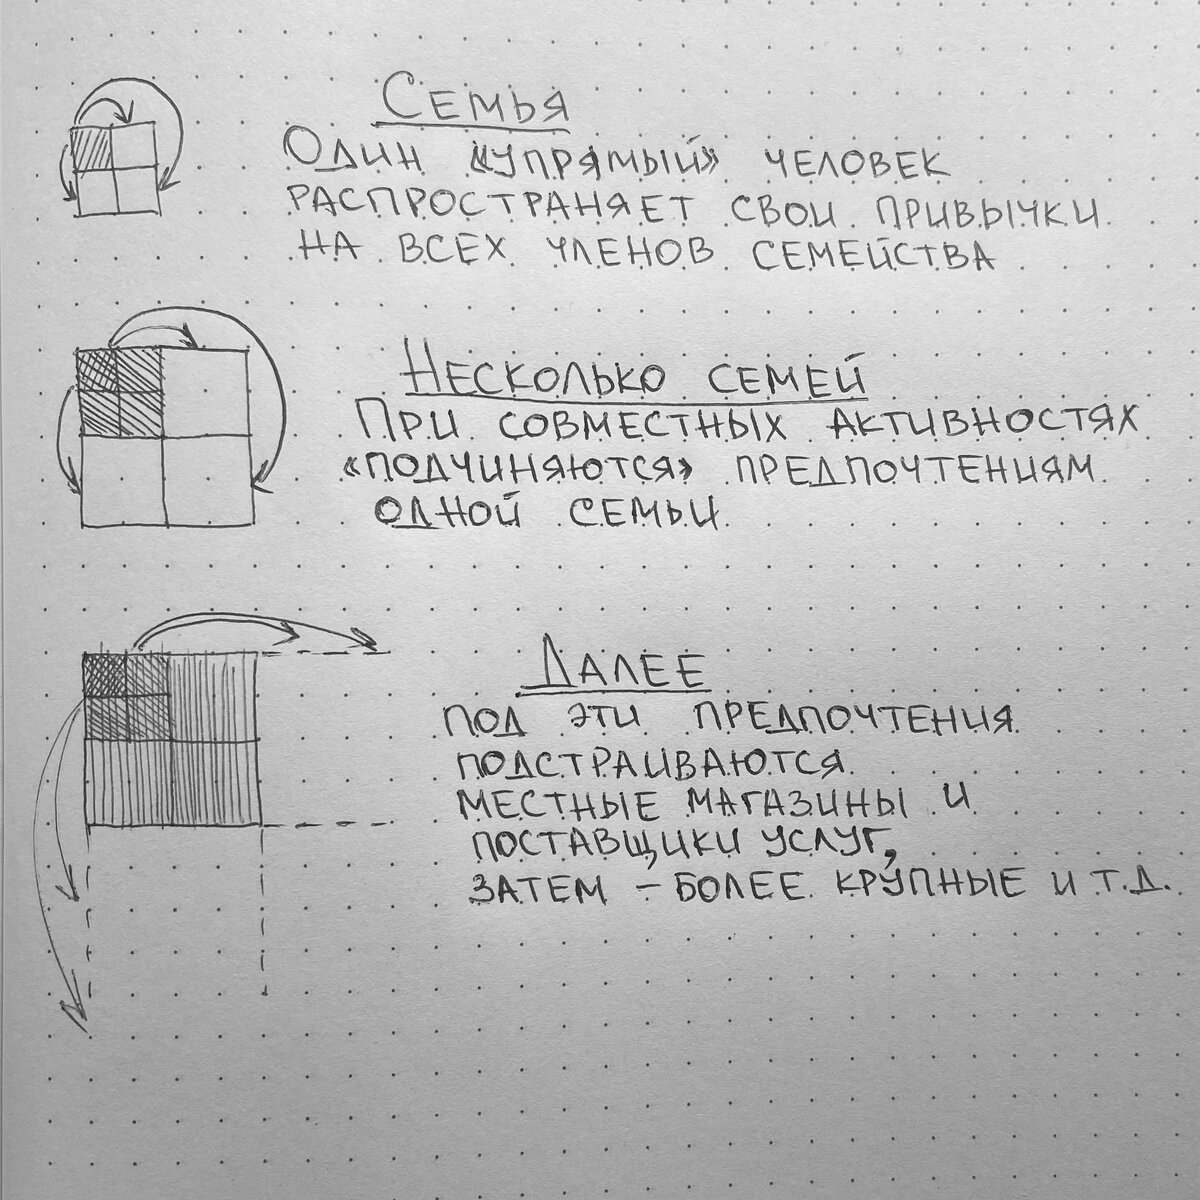 Семья
Один «упрямый» человек
распространяет свои привычки
на всех членов семейства
Несколько семей
При совместных активностях
«подчиняются» предпочтениям
одной семьи
Далее
под эти предпочтения
подстраиваются
местные магазины и
поставщики услуг,
затем – более крупные и т.д.